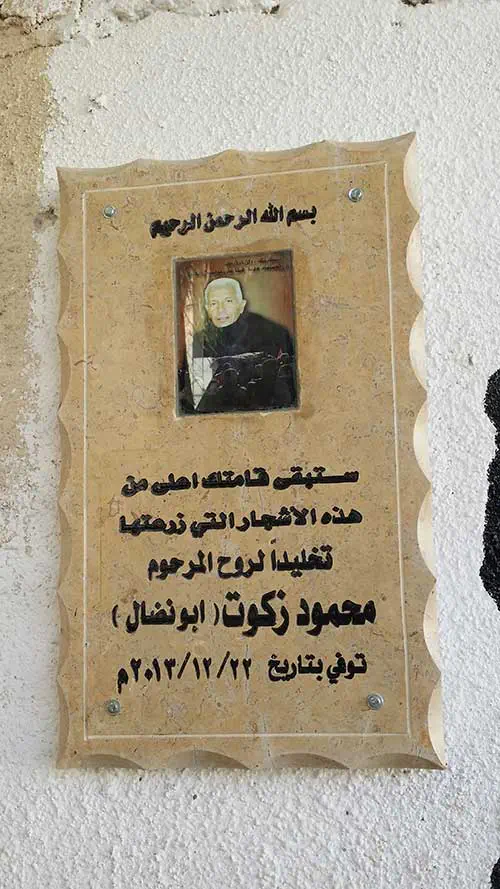 بسم الله الرحمن الرحيم
ستبقى قامتك اعلى من
هذه الأشجار التي زرعتها
تخليداً لروح المرحوم
محمود زكوت (ابو نضال)
توفي بتاريخ ٢٠١٣/١٢/٢٢م